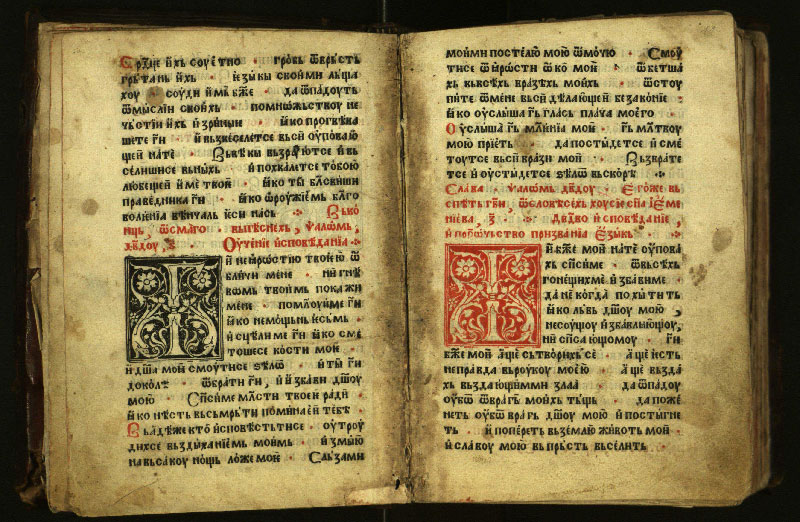 Ср҃дце и́хь соуѐтно · гро́бь ѿврьсть
грьтань и́хь · і́езы́кы свои́ми льща
хоу · соуди и́мь бж҃е · да ѿпадоуть
ѿмы́слїи свои́хь · помнѡжьствоу не
чьстїи и́хь и́зрини · ꙗ҆́ко прогнѣва
ше те гн҃и · и́ вьзвеселетсе вьси оу҆пова
щеи на те · Вьвѣкы вьзраⷣютсе и́ вь
селишисе вьны́хь · и́ похвалетсе тобою
любещеи и́ме твоѐ · ꙗ҆́ко ты бл҃свиши
праведника гн҃и · ꙗ҆́ко ѡ҆роу́жїемь бл҃го
волѥнїа вѣнчаль ѥ҆си нась ·
Вькѡ
нць, ѡ҆смаго · вьпѣснехь, ѱалѡмь,
дв҃доу, ѕ҃ · Оу҆че́нїе и҆сповѣданїа
Гн҃и не ꙗ҆́ростїю твоѐю ѡ҆
бличи мене · ни гнѣ
вѡмь твои́мь покажи
мене · помлоуи ме гн҃и
ꙗ҆́ко немощьнь ѥ҆сьмь ·
и҆сцѣли ме гн҃и ꙗ҆́ко сме
тошесе кости моѐ ·
и́ дш҃а моꙗ̀ смоутисе ѕѣлѡ · и́ ты̀ гн҃и
доколѣ · ѡ҆брати гн҃и, и́ и҆збави дш҃оу
мою · Сп҃си ме млⷭ҇ти твоѐи ради ·
ꙗ҆́ко нѣсть вь смрьти помина́ѥи тебѣ ·
Вь адѣ же кто и҆сповѣстьтисе · оу҆троу
дихсе вьздыханїемь мои́мь · и҆змы́ю
на вьсакоу нощь ло́же моѐ · Сльзами
мои́ми постелю мою ѡ҆мо́чю · Смоу
тисе ѿ ꙗ҆́рости ѡ҆ко моѐ · ѡ҆бетша
хь вь всѣхь вразѣхь мои́хь · ѿстоу
пите ѿ мене вьси дѣлающеи безаконїе ·
ꙗ҆́ко оу҆слыша гь҃ глась плача моѐго ·
Оу҆слыша гь҃ мл҃е́нїа моꙗ̀ · гь҃ мл҃твоу
мою прїеть · да постыдетсе и́ сме
тоутсе вьси врази мои · Вьзврате
тсе и́ оу҆стыдетсе ѕѣлѡ вьскорѣ ·
Слава · ѱалѡмь дв҃доу · Ѥ҆гоже вь
спѣть гв҃и, ѡ҆ словесѣхь хоусїе сн҃а і҆еме
нїева, з҃ · дв҃дво и҆сповѣданїе,
и́ прⷪ҇рочьство призванїа ѥ҆зы́кь
Гн҃и бж҃е мои на те оу҆пова
хь сп҃си ме · ѿ вьсѣхь
гонещихь ме и҆ збави ме ·
да не когда похы́тить
ꙗ҆́ко львь дш҃оу мою,
не соущоу и҆збавлꙗющоу,
ни сп҃сающомоу · гн҃и
бж҃е мои аще сьтворихь се · аще ѥ҆сть
неправда вь роукоу моѐю · аще вьзда
хь вьздающимь ми злаа · да ѿпадоу
оу҆бѡ ѿ врагь мои́хь тьщь · да поже
неть оу҆бѡ врагь дш҃оу мою · и́ постигне
ть · и́ попереть вь землю животь мои ·
и́ славоу мою вь прьсть вьселить